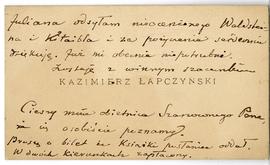 Juliana odsyłam nieocenionego Waldste-
na i Kitaibla i za pożyczenie serdecznie
dziękuję. Już mi obecnie niepotrzebne.
Zostaję z winnym szacunkiem
KAZIMIERZ ŁAPCZYŃSKI
Cieszy mnie obietnica Szanownego Pana
że się osobiście poznamy.
Proszę o bilet że Książki posłaniec oddał.
W dwóch kierunkach zapłacony.